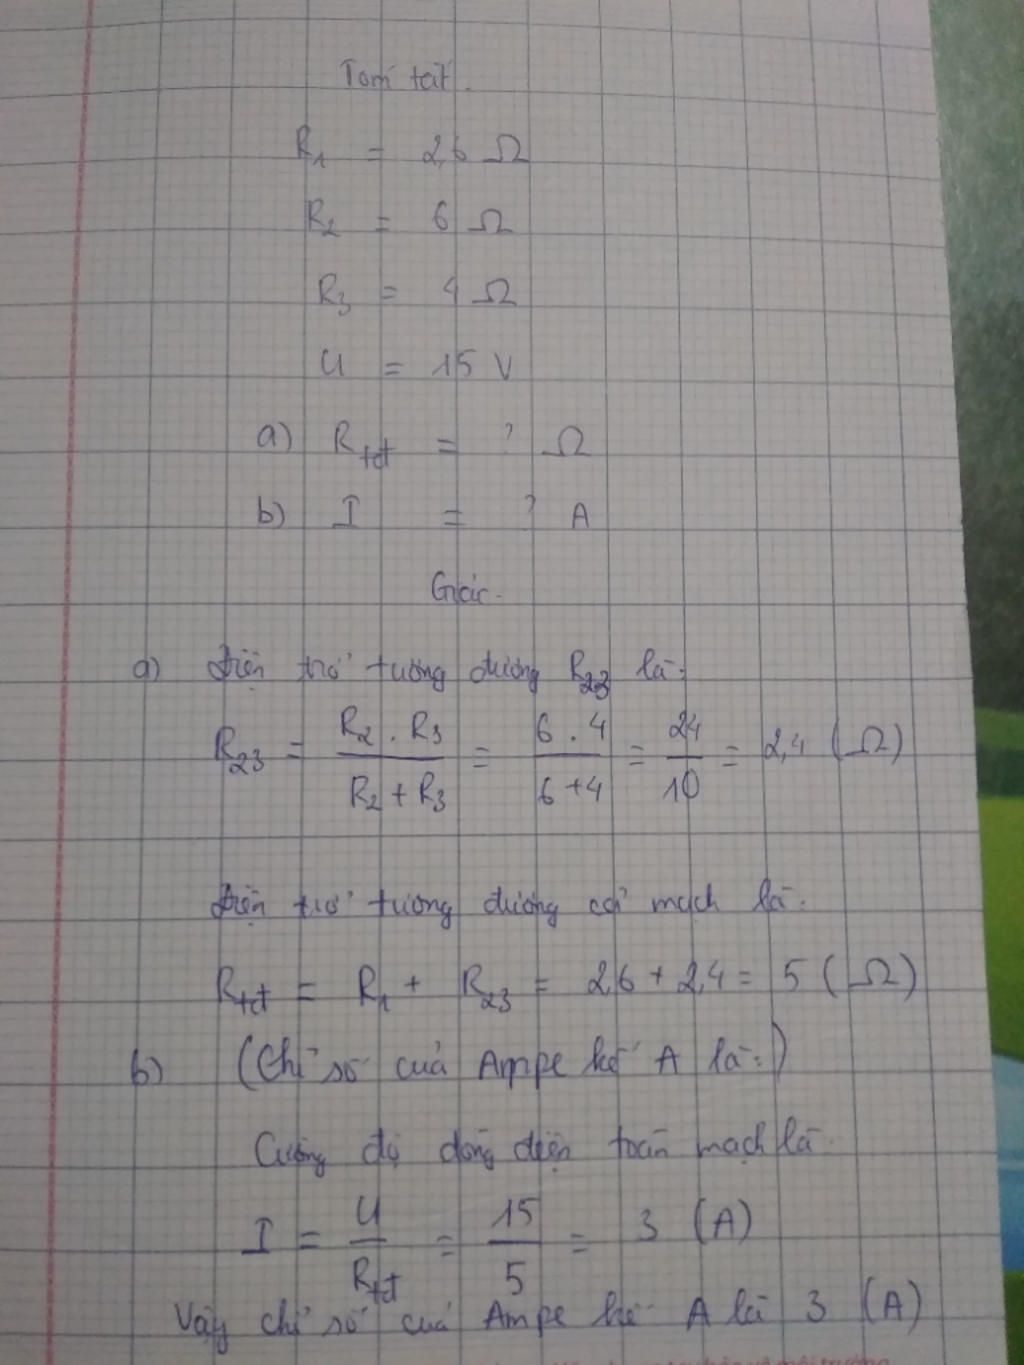 Tóm tắt.
R1 = 2,6 Ω
R2 = 6 Ω
R3 = 4 Ω
U = 15 V
a) Rtđ = ? Ω
b) I = ? A
Giải.
a) Điện trở tương đương R23 là:
R23 = R2 . R3 / R2 + R3 = 6 . 4 / 6 + 4 = 24 / 10 = 2,4 (Ω)
Điện trở tương đương cả mạch là:
Rtđ = R1 + R23 = 2,6 + 2,4 = 5 (Ω)
b) (Chỉ số của Ampe kế A là:)
Cường độ dòng điện toàn mạch là:
I = U / Rtđ = 15 / 5 = 3 (A)
Vậy chỉ số của Ampe kế A là 3 (A)